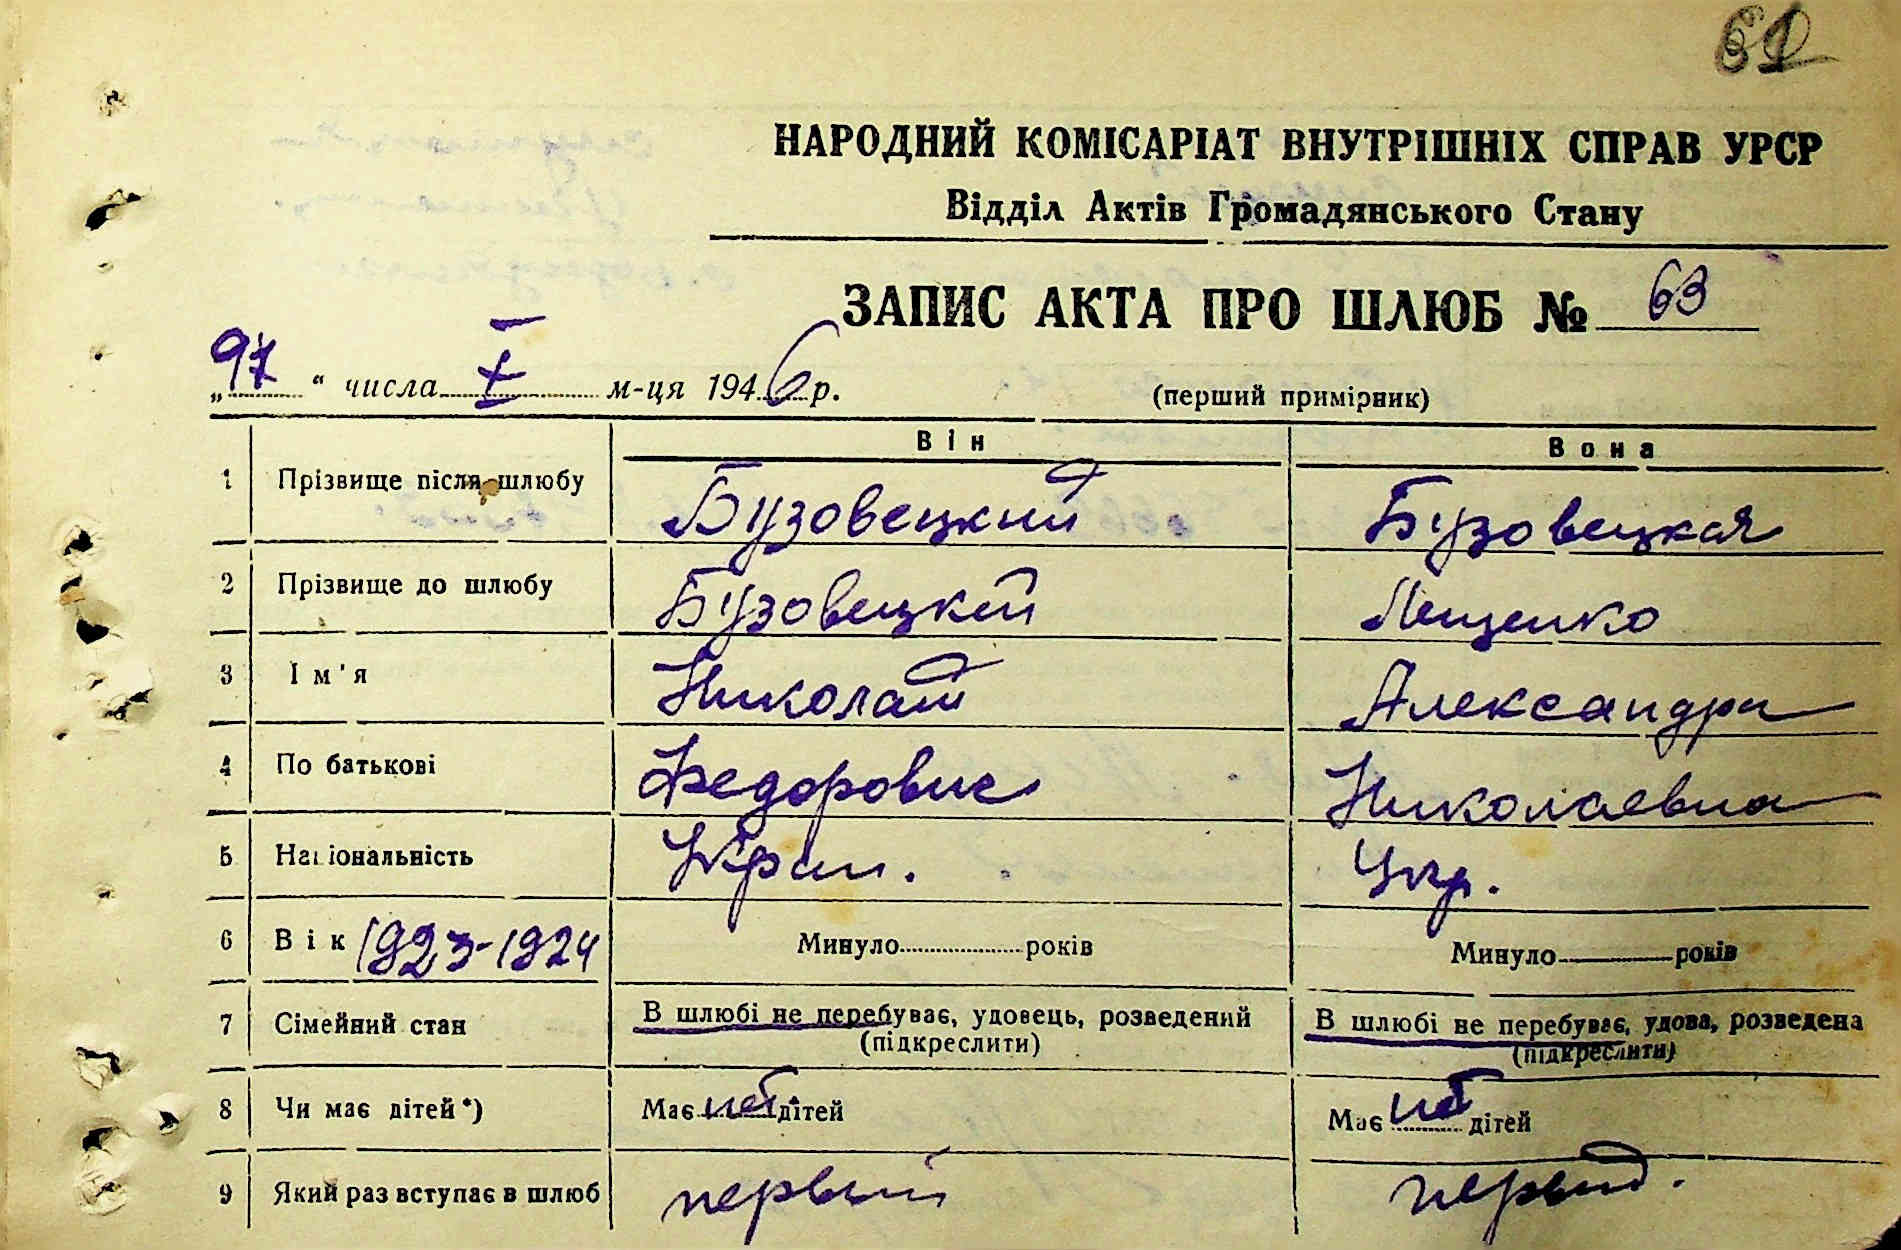 НАРОДНИЙ КОМІСАРІАТ ВНУТРІШНІХ СПРАВ УРСР
Відділ Актів Громадянського Стану
ЗАПИС АКТА ПРО ШЛЮБ № 63
„ “ числа X м-ця 1946 р. (перший примірник)
Він Вона
1 Прізвище після шлюбу Бузовецкий Бузовецкая
2 Прізвище до шлюбу Бузовецкий Лещенко
3 Ім'я Николай Александра
4 По батькові Федорович Николаевна
5 Національність Украи. Укр.
6 Вік 1923-1924 Минуло років Минуло років
7 Сімейний стан В шлюбі не перебуває, удовець, розведений В шлюбі не перебуває, удова, розведена
(підкреслити) (підкреслити)
8 Чи має дітей*) Має нет дітей Має нет дітей
9 Який раз вступає в шлюб первый первый.